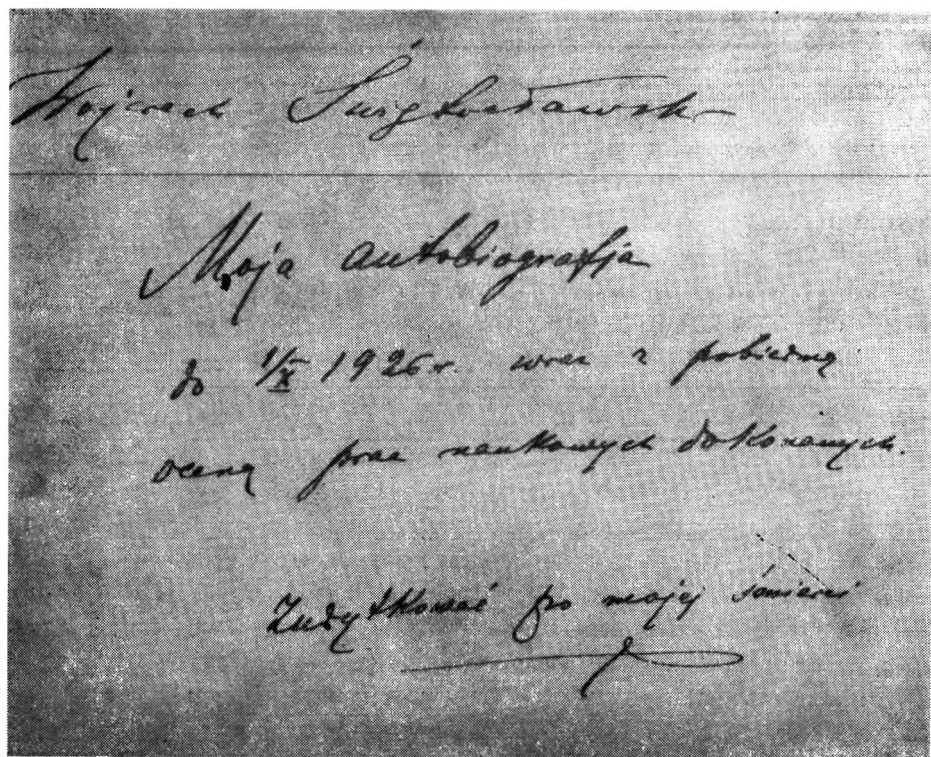 Wojciech Świętosławski
Moja autobiografja
do 1/X 1926 r. wraz z pobieżną
oceną prac naukowych dokonanych.
Zużytkować po mojej śmierci